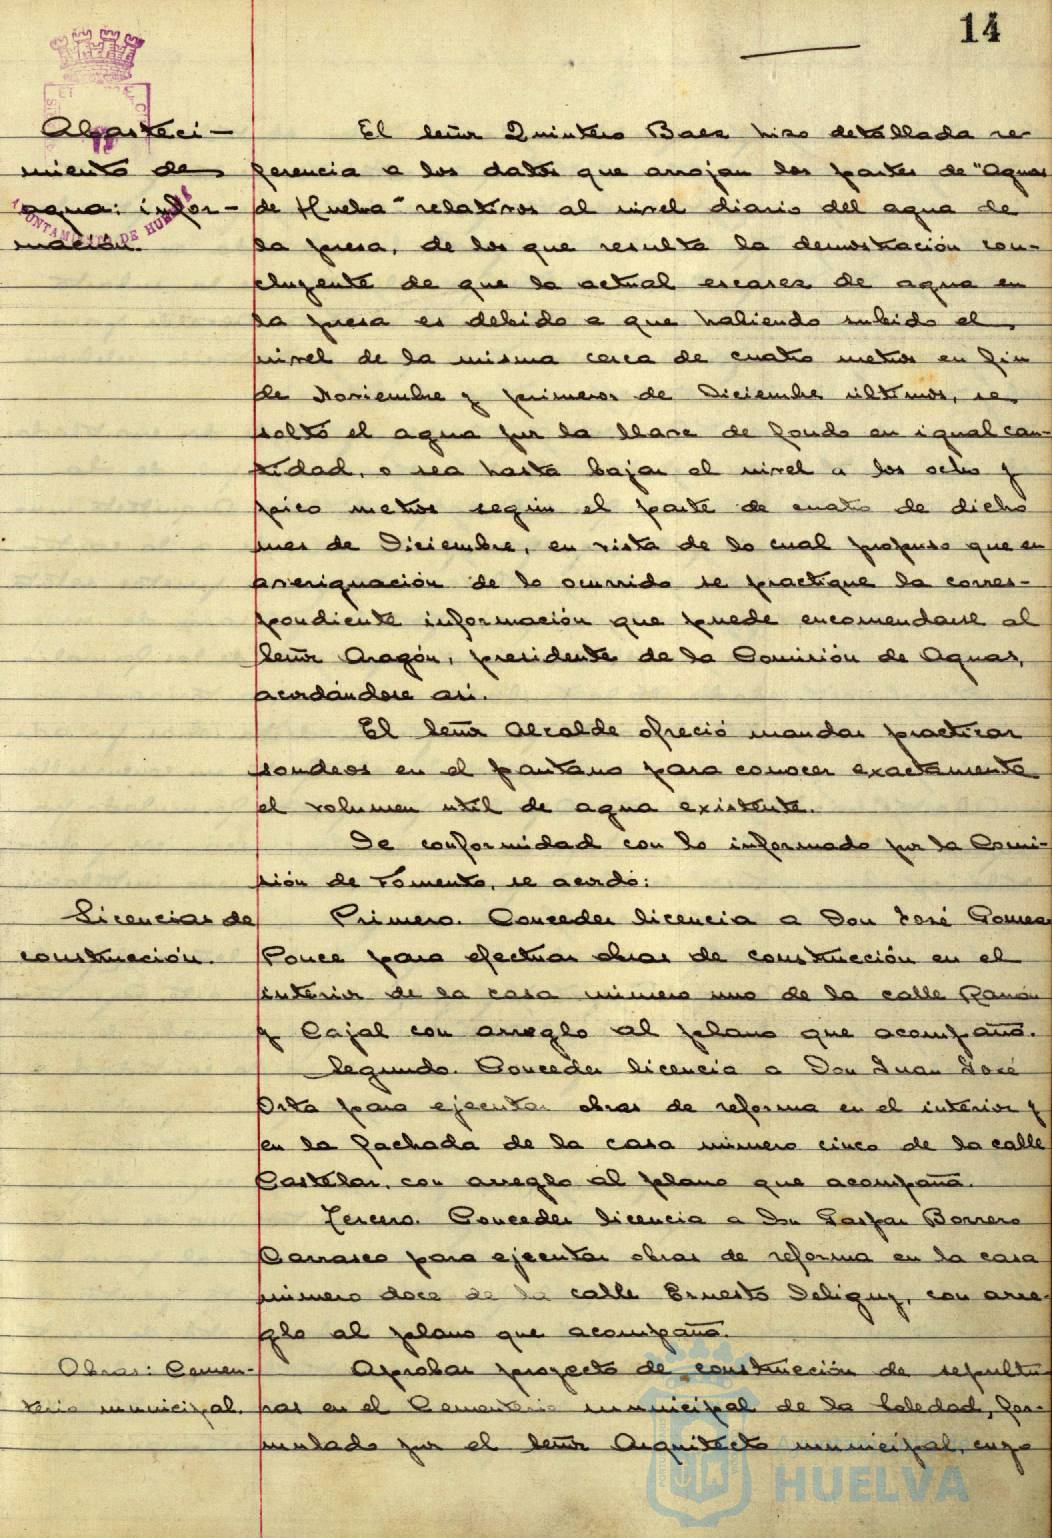 14
Abasteci-
miento de
agua: infor-
mación.
El Señor Quintero Baez hizo detallada re-
ferencia a los datos que arrojan los partes de "Aguas
de Huelva" relativos al nivel diario del agua de
la presa, de los que resulta la demostración con-
cluyente de que la actual escasez de agua en
la presa es debido a que habiendo subido el
nivel de la misma cerca de cuatro metros en fin
de Noviembre y primeros de Diciembre últimos, se
soltó el agua por la llave de fondo en igual can-
tidad, o sea hasta bajar el nivel a los ocho y
pico metros según el parte de cuatro de dicho
mes de Diciembre, en vista de lo cual propuso que en
averiguación de lo ocurrido se practique la corres-
pondiente información que puede encomendarse al
Señor Aragón, presidente de la Comisión de Aguas,
acordándose así.
El Señor Alcalde ofreció mandar practicar
sondeos en el pantano para conocer exactamente
el volumen util de agua existente.
De conformidad con lo informado por la Comi-
sión de Fomento, se acordó:
Licencias de
construcción.
Primero. Conceder licencia a Don José Gomez
Ponce para efectuar obras de construcción en el
interior de la casa número uno de la calle Ramón
y Cajal con arreglo al plano que acompaña.
Segundo. Conceder licencia a Don Juan José
Orta para ejecutar obras de reforma en el interior y
en la fachada de la casa número cinco de la calle
Castelar, con arreglo al plano que acompaña.
Tercero. Conceder licencia a Don Gaspar Borrero
Carrasco para ejecutar obras de reforma en la casa
número doce de la calle Ernesto Deligny, con arre-
glo al plano que acompaña.
Obras: Cemen-
terio municipal.
Aprobar proyecto de construcción de sepultu
ras en el Cementerio municipal de la Soledad, for-
mulado por el Señor Arquitecto municipal, cuyo
AYUNTAMIENTO DE HUELVA
HUELVA